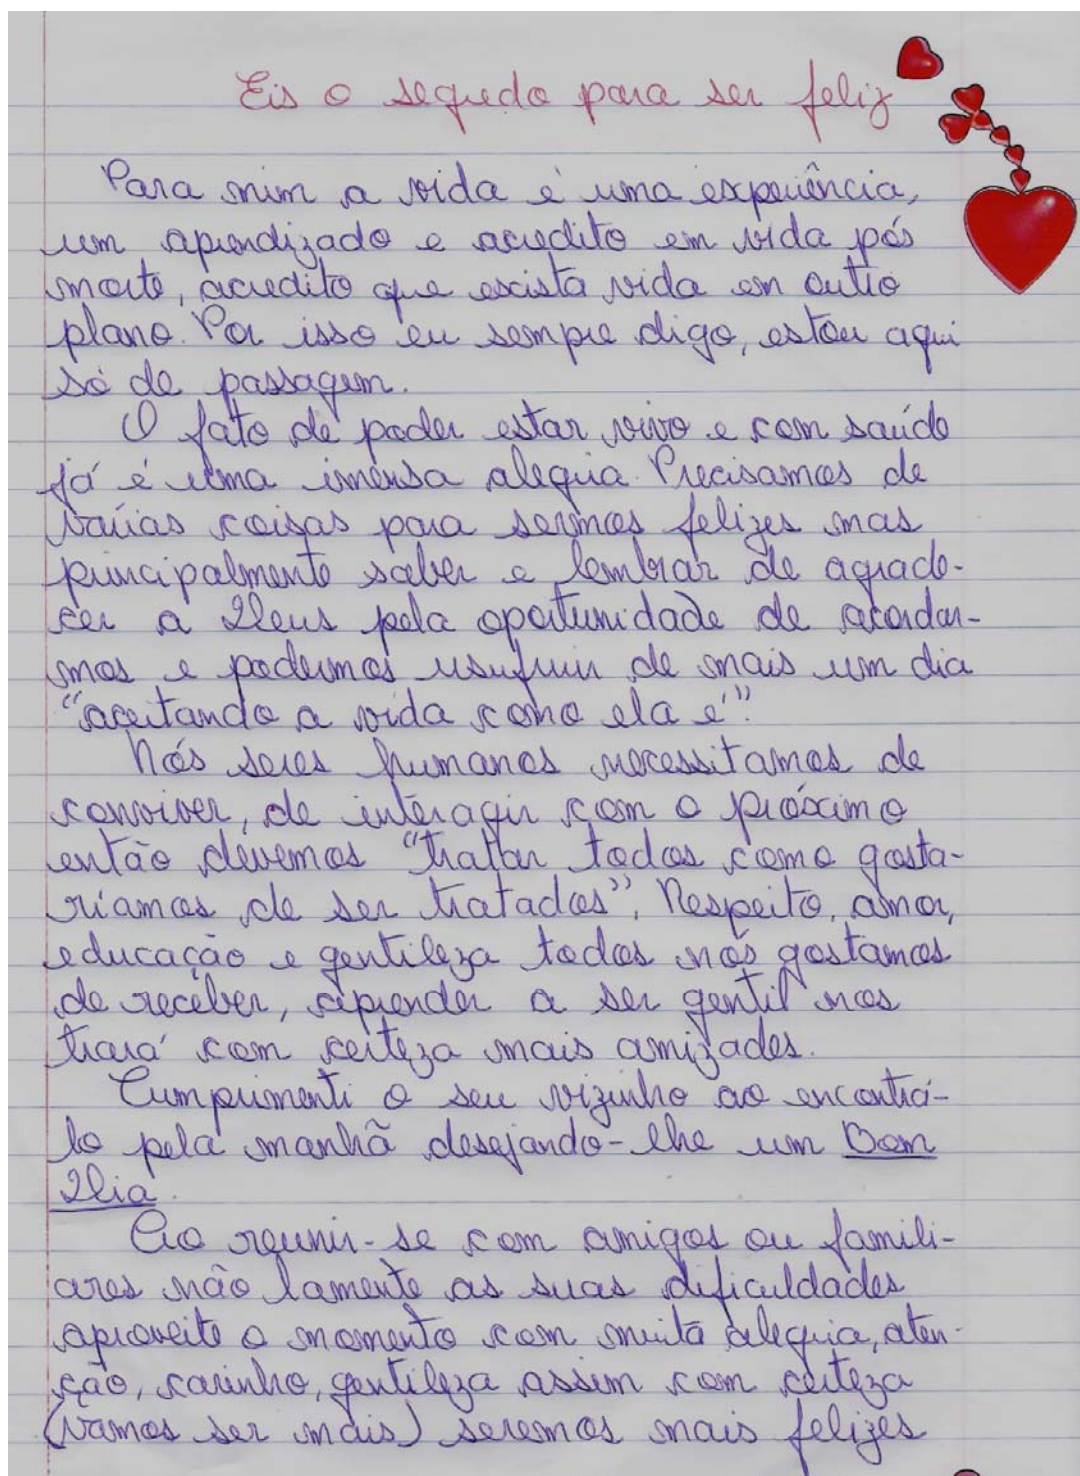 Eis o segredo para ser feliz
Para mim a vida é uma experiência,
um aprendizado e acredito em vida pós
morte, acredito que exista vida em outro
plano. Por isso eu sempre digo, estou aqui
só de passagem.
O fato de poder estar vivo e com saúde
já é uma imensa alegria. Precisamos de
várias coisas para sermos felizes mas
principalmente saber e lembrar de agrade-
cer a Deus pela oportunidade de acordar-
mos e podermos usufruir de mais um dia
"aceitando a vida como ela é".
Nós seres humanos necessitamos de
conviver, de interagir com o próximo
então devemos "tratar todos como gosta-
riamos de ser tratados", Respeito, amor,
educação e gentileza todos nós gostamos
de receber, aprender a ser gentil nos
trará com certeza mais amizades.
Cumprimenti o seu vizinho ao encontrá-
lo pela manhã desejando-lhe um Bom
Dia.
Ao reunir-se com amigos ou famili-
ares não lamente as suas dificuldades
aproveite o momento com muita alegria, aten-
ção, carinho, gentileza assim com certeza
(vamos ser mais) seremos mais felizes